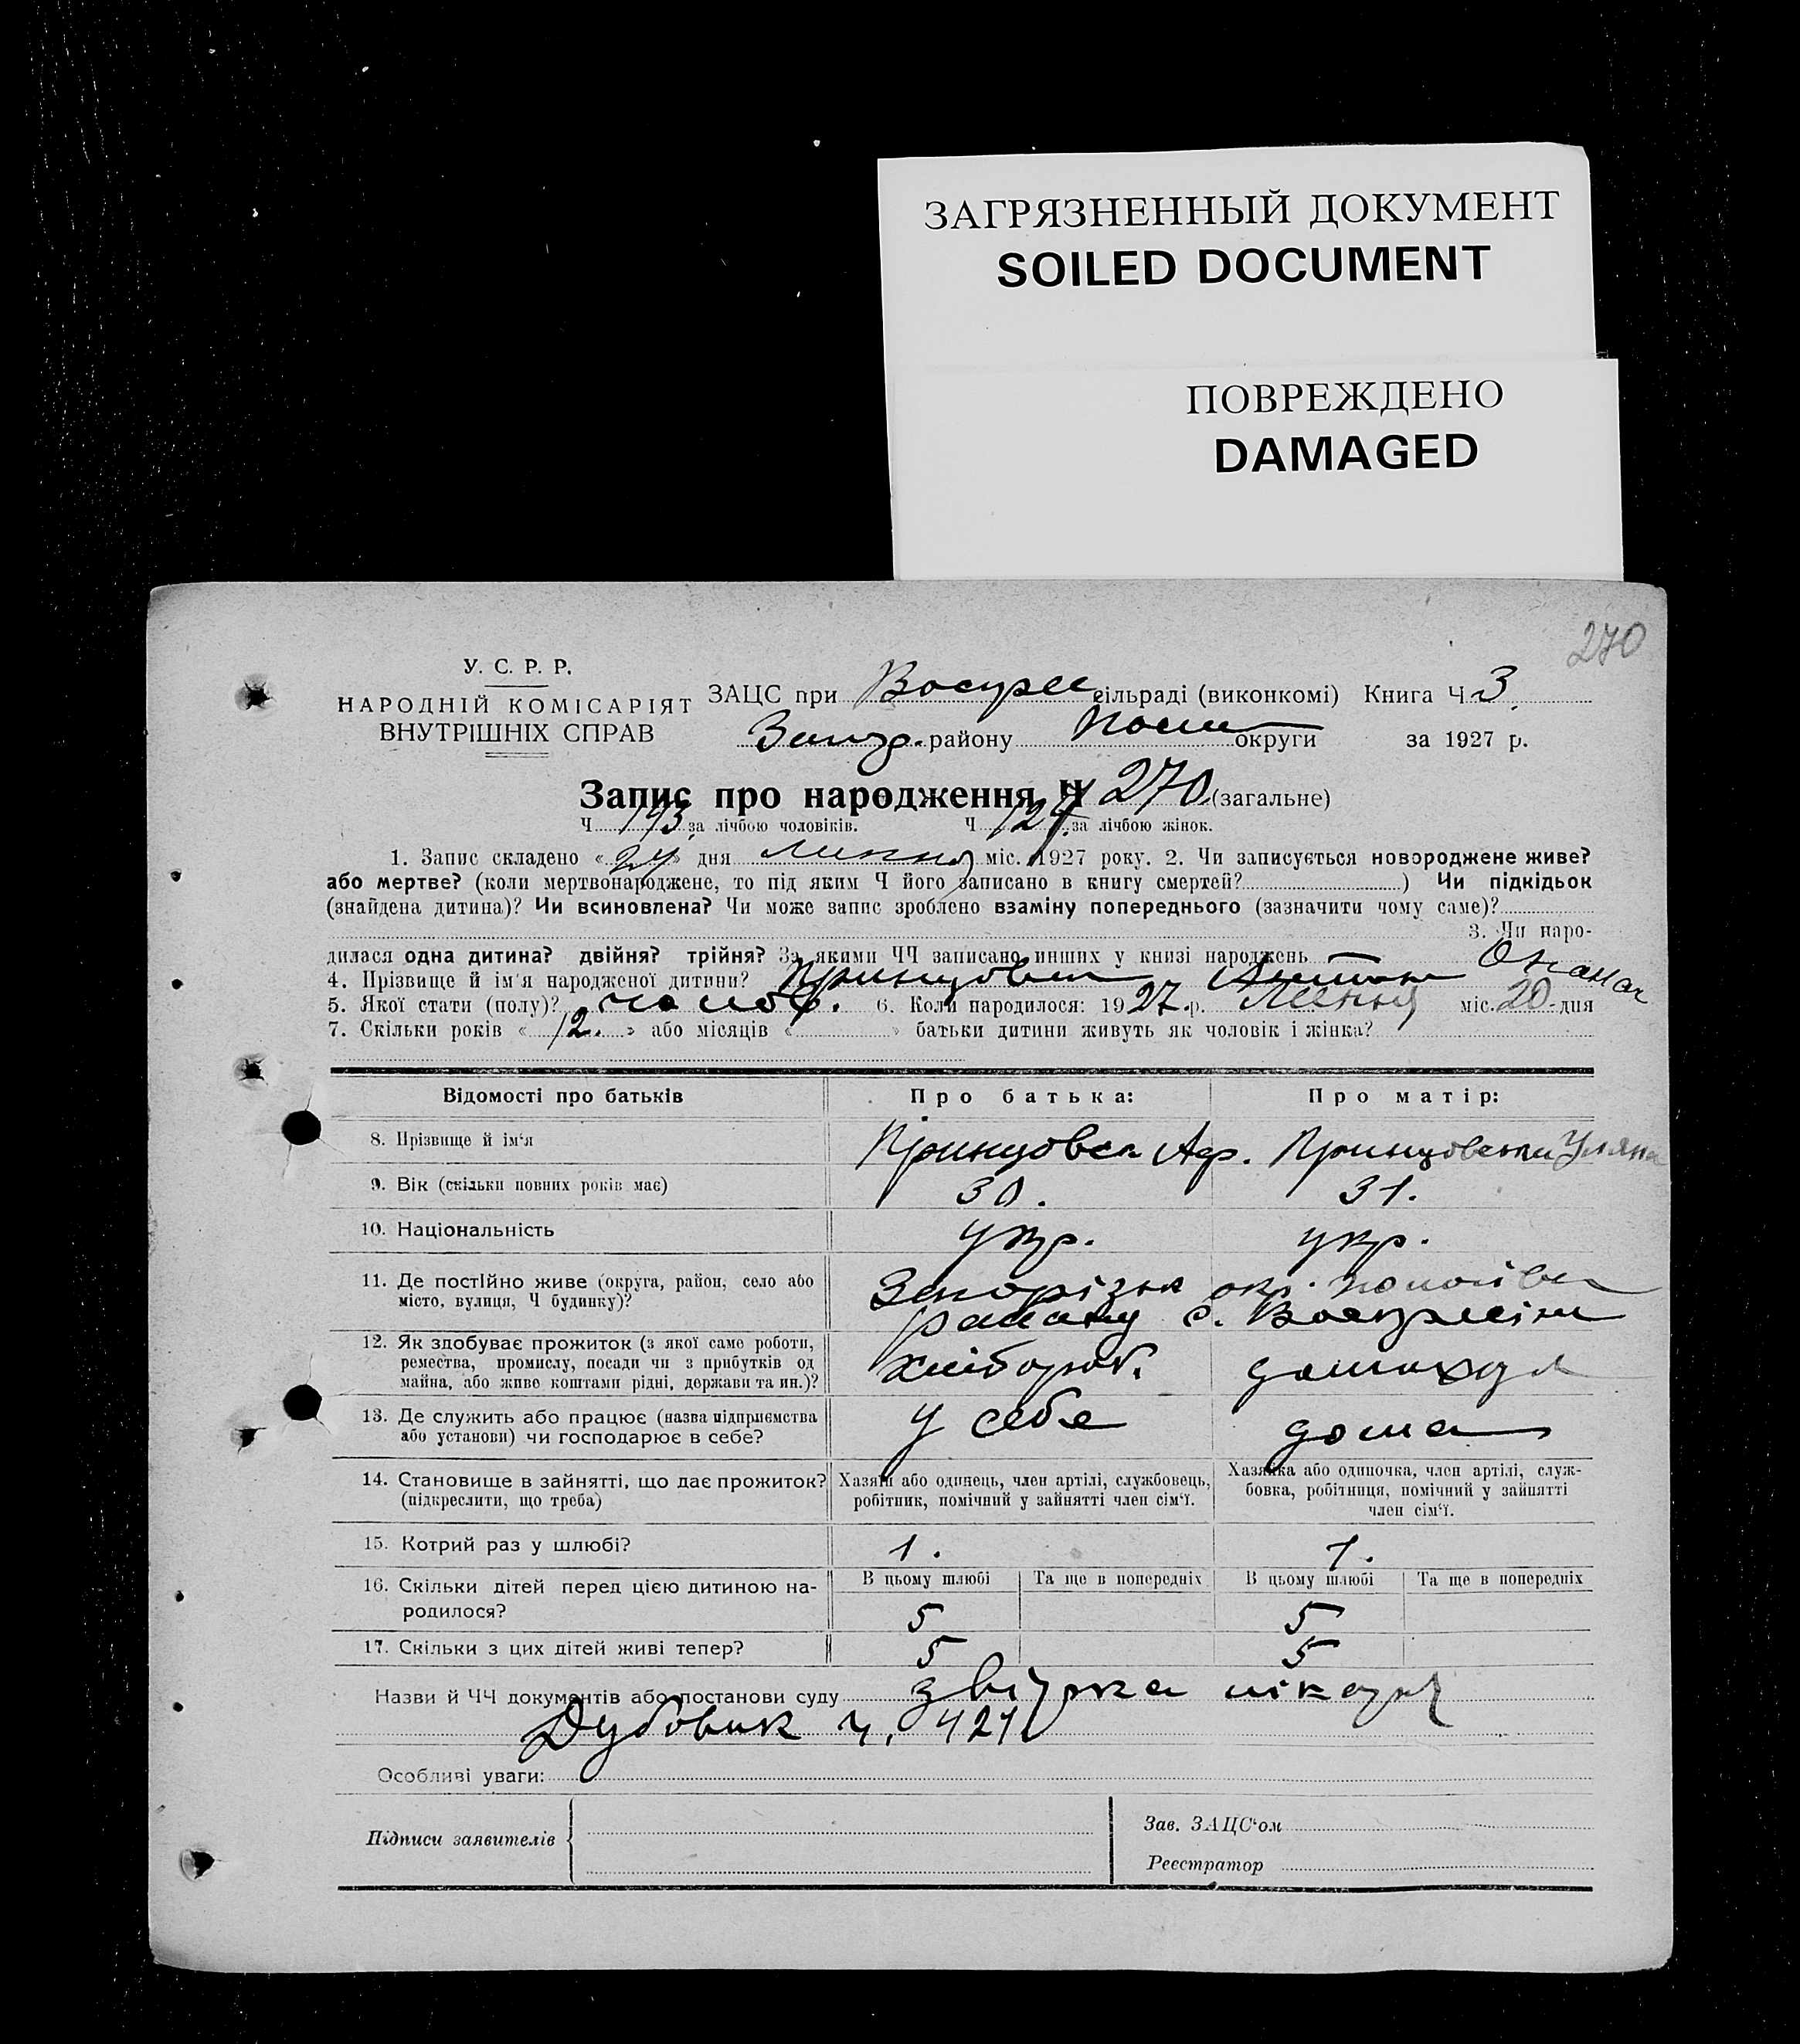 ЗАГРЯЗНЕННЫЙ ДОКУМЕНТ
SOILED DOCUMENT
ПОВРЕЖДЕНО
DAMAGED
270
У. С. Р. Р.
НАРОДНІЙ КОМІСАРІЯТ
ВНУТРІШНІХ СПРАВ
ЗАЦС при сільраді (виконкомі) Книга Ч 3.
району округи за 1927 р.
Запис про народження Ч 270 (загальне)
Ч 143 за лічбою чоловіків. Ч 127 за лічбою жінок.
1. Запис складено « 24 » дня липня міс. 1927 року. 2. Чи записується новороджене живе?
або мертве? (коли мертвонароджене, то під яким Ч його записано в книгу смертей? ) Чи підкідьок
(знайдена дитина)? Чи всиновлена? Чи може запис зроблено взаміну попереднього (зазначити чому саме)?
3. Чи наро-
дилася одна дитина? двійня? трійня? За якими ЧЧ записано инших у книзі народжень
4. Прізвище й ім'я народженої дитини?
5. Якої стати (полу)? чолов. 6. Коли народилося: 1927 р. Липня міс. 20 дня
7. Скільки років « 12. » або місяців « » батьки дитини живуть як чоловік і жінка?
Відомості про батьків Про батька: Про матір:
8. Прізвище й ім'я Уляна
9. Вік (скільки повних років має) 30. 31.
10. Національність укр. укр.
11. Де постійно живе (округа, район, село або
місто, вулиця, Ч будинку)? Запорізьк окр.
району с.
12. Як здобуває прожиток (з якої саме роботи,
ремества, промислу, посади чи з прибутків од
майна, або живе коштами рідні, держави та ин.)? хлібороб.
13. Де служить або працює (назва підприємства
або установи) чи господарює в себе? у себе дома
14. Становище в зайнятті, що дає прожиток? Хазяїн або одинець, член артілі, службовець,
(підкреслити, що треба) робітник, помічний у зайнятті член сім'ї.
Хазяйка або одиночка, член артілі, служ-
бовка, робітниця, помічний у зайнятті
член сім'ї.
15. Котрий раз у шлюбі? 1. 1.
16. Скільки дітей перед цією дитиною на-
родилося? В цьому шлюбі Та ще в попередніх В цьому шлюбі Та ще в попередніх
5 5
17. Скільки з цих дітей живі тепер? 5 5
Назви й ЧЧ документів або постанови суду звірка лікаря
Дубовик ч. 421
Особливі уваги:
Підписи заявителів
Зав. ЗАЦС'ом
Реєстратор